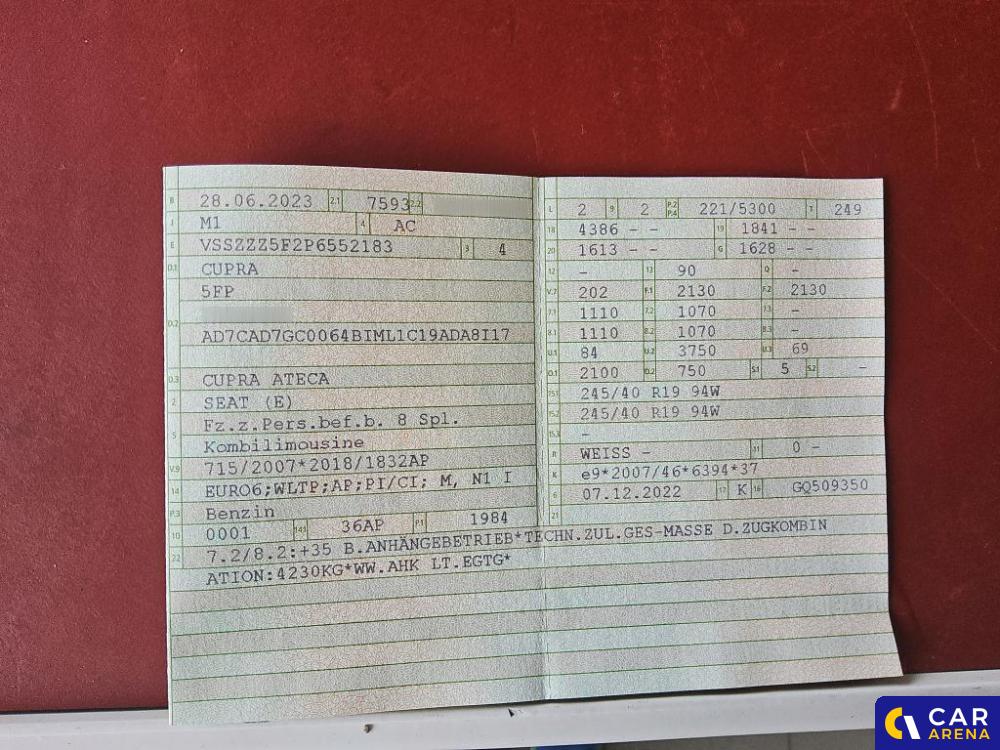 B 28.06.2023 2.1 7593 2.2
J M1 4 AC
E VSSZZZ5F2P6552183 3 4
D.1 CUPRA
5FP
D.2
AD7CAD7GC0064BIML1C19ADA8I17
D.3 CUPRA ATECA
2 SEAT (E)
5 Fz.z.Pers.bef.b. 8 Spl.
Kombilimousine
V.9 715/2007*2018/1832AP
14 EURO6;WLTP;AP;PI/CI; M, N1 I
P.3 Benzin
10 0001 14.1 36AP P.1 1984
22 7.2/8.2:+35 B.ANHÄNGEBETRIEB*TECHN.ZUL.GES-MASSE D.ZUGKOMBIN
ATION:4230KG*WW.AHK LT.EGTG*
L 2 9 2 P.2 P.4 221/5300 T 249
18 4386 - - 19 1841 - -
20 1613 - - G 1628 - -
12 - 13 90 Q -
V.7 202 F.1 2130 F.2 2130
7.1 1110 7.2 1070 7.3 -
8.1 1110 8.2 1070 8.3 -
U.1 84 U.2 3750 U.3 69
O.1 2100 O.2 750 S.1 5 S.2 -
15.1 245/40 R19 94W
15.2 245/40 R19 94W
15.3 -
R WEISS - 11 0 -
K e9*2007/46*6394*37
6 07.12.2022 17 K 16 GQ509350
21
CAR
ARENA